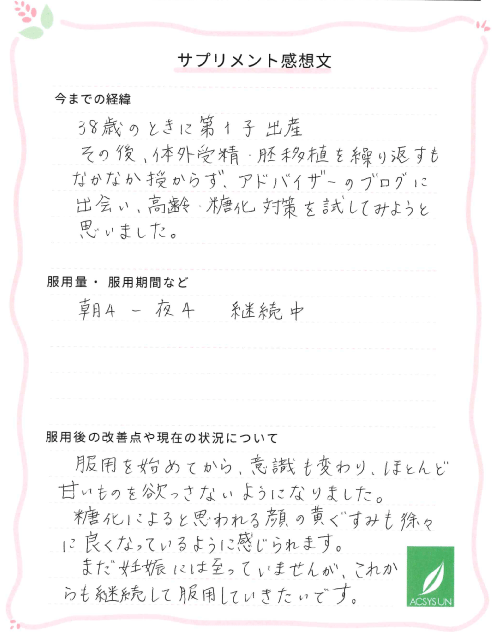 サプリメント感想文
今までの経緯
38歳のときに第1子出産
その後、体外受精・胚移植を繰り返すも
なかなか授からず、アドバイザーのブログに
出会い、高齢・糖化対策を試してみようと
思いました。
服用量・服用期間など
朝4 − 夜4 継続中
服用後の改善点や現在の状況について
服用を始めてから、意識も変わり、ほとんど
甘いものを欲っさないようになりました。
糖化によると思われる顔の黄ぐすみも徐々
に良くなっているように感じられます。
まだ妊娠には至っていませんが、これか
らも継続して服用していきたいです。
ACSYSUN